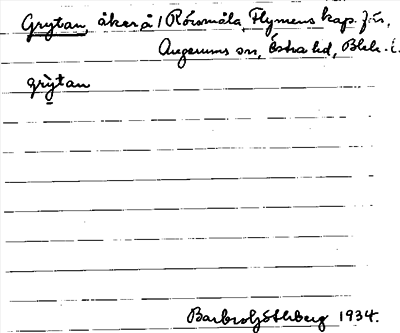 Grytan, åker å 1 Rörsmåla, Flymens kap. förs.,
Augerums sn, Östra hd, Blek. l.
gry̱tan
Barbro Göthberg 1934.